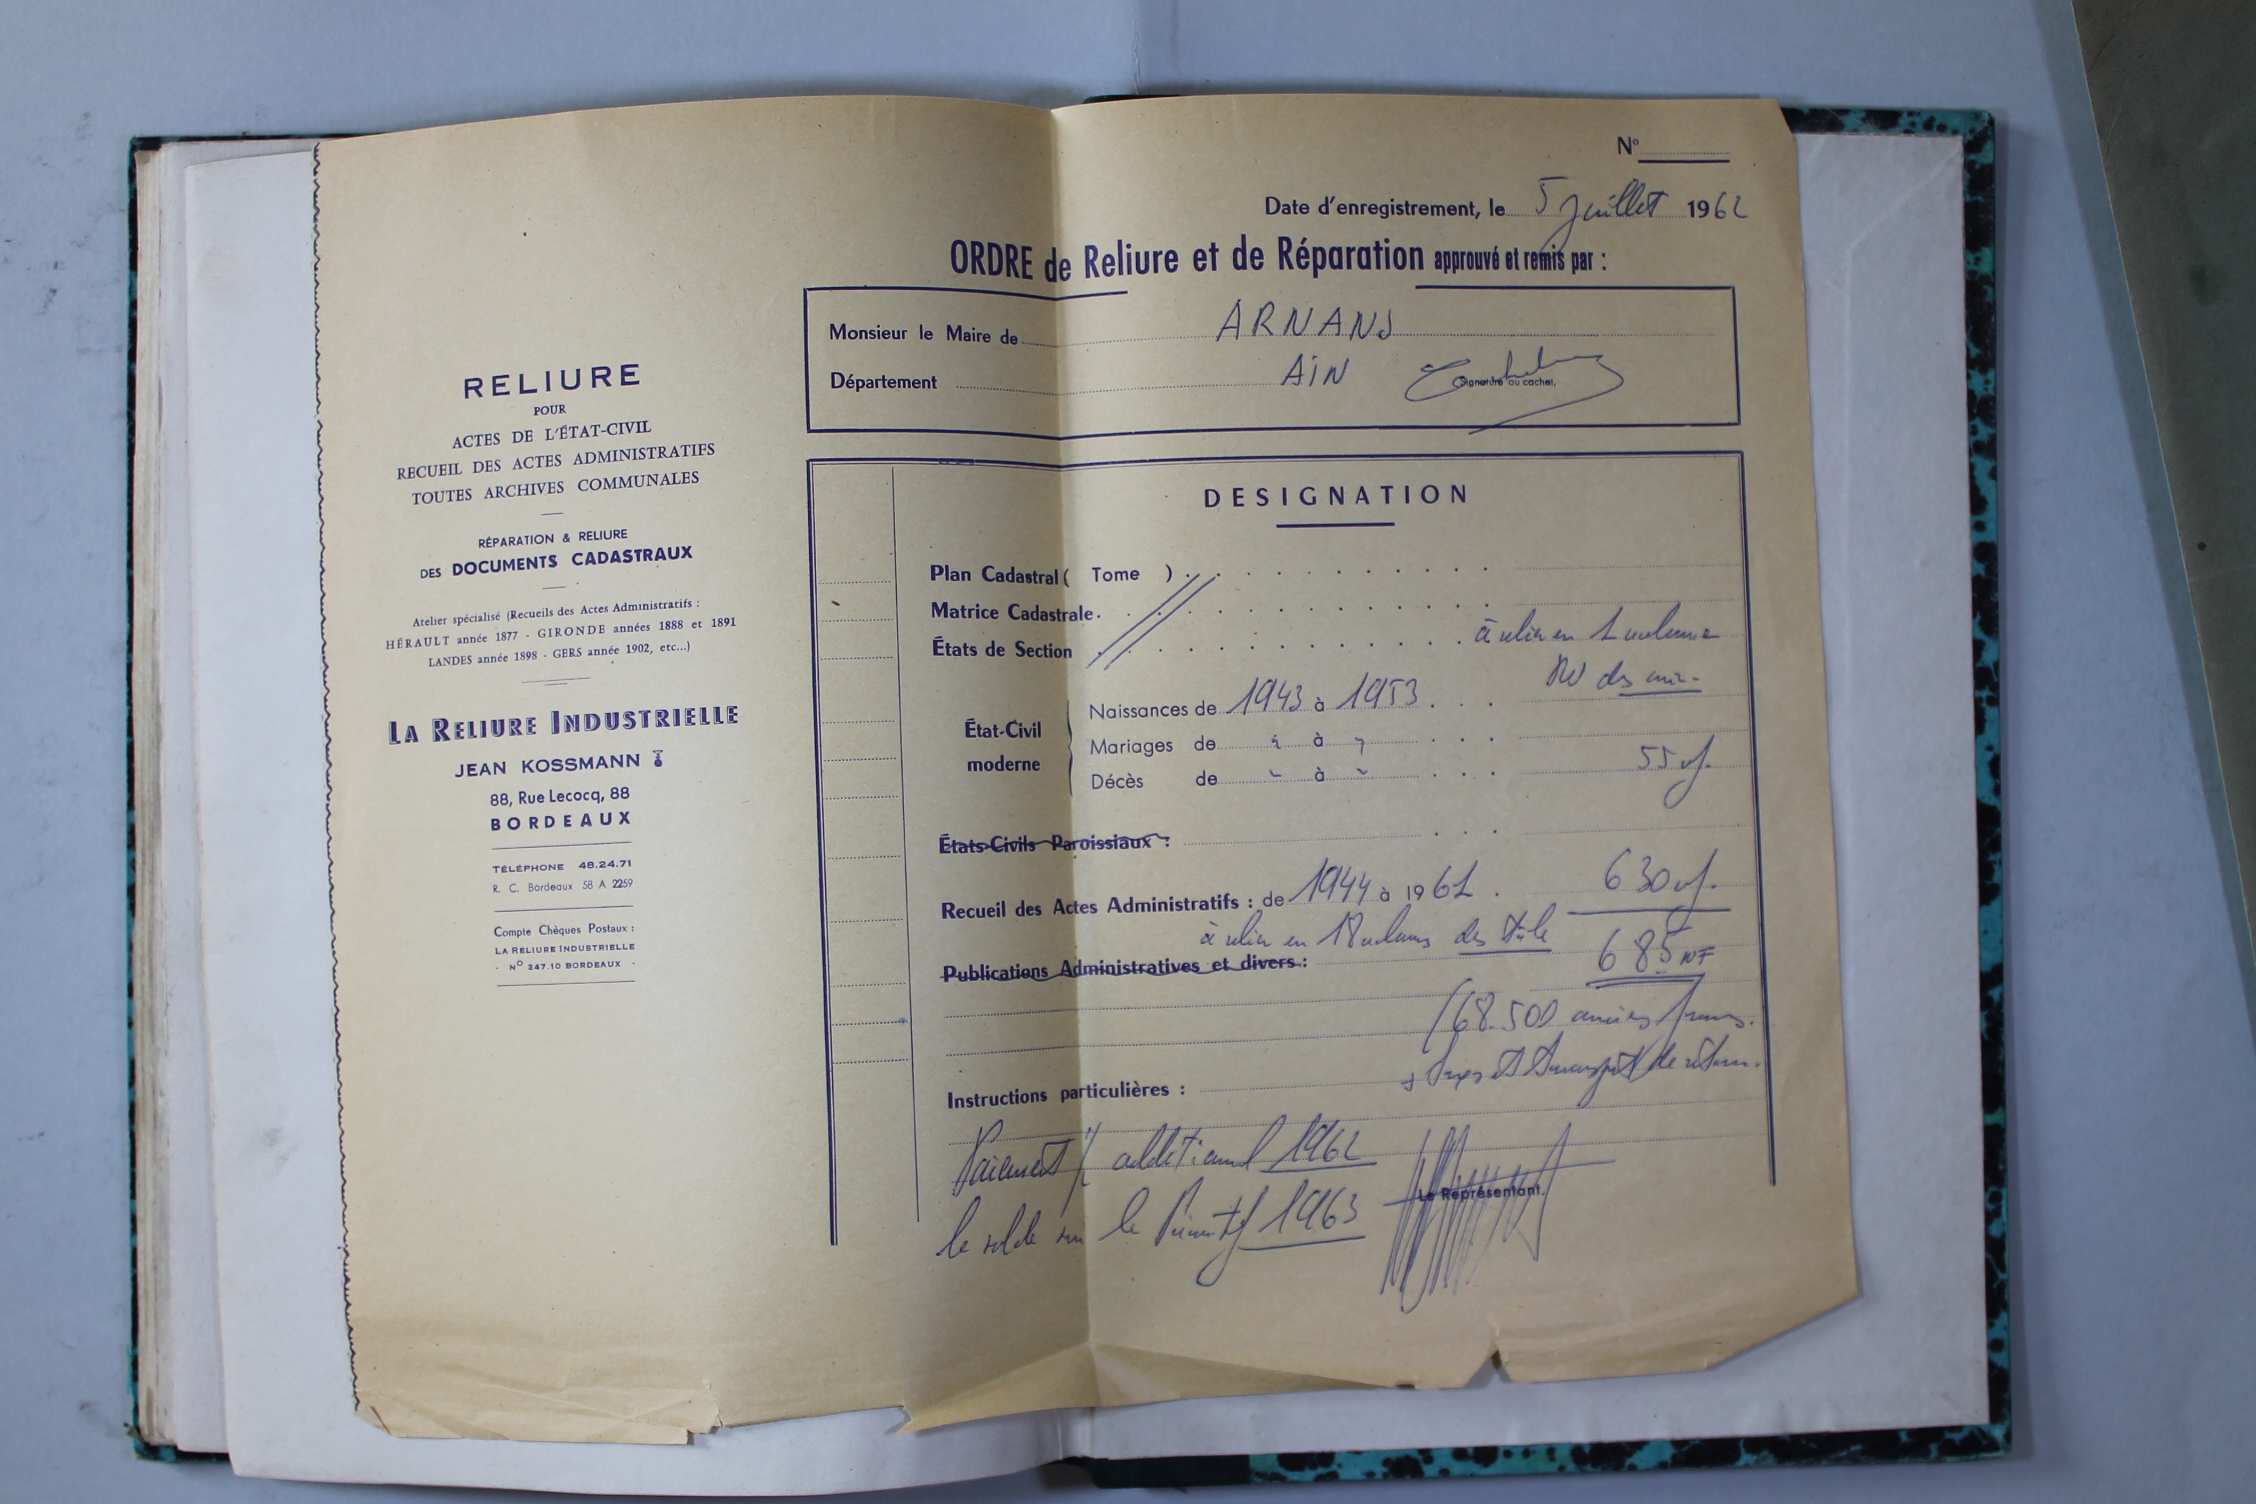 RELIURE
POUR
ACTES DE L'ÉTAT-CIVIL
RECUEIL DES ACTES ADMINISTRATIFS
TOUTES ARCHIVES COMMUNALES
RÉPARATION & RELIURE
DES DOCUMENTS CADASTRAUX
Atelier spécialisé (Recueils des Actes Administratifs :
HÉRAULT année 1877 - GIRONDE années 1888 et 1891
LANDES année 1898 - GERS année 1902, etc...)
LA RELIURE INDUSTRIELLE
JEAN KOSSMANN
88, Rue Lecocq, 88
BORDEAUX
TÉLÉPHONE 48.24.71
R. C. Bordeaux 58 A 2259
Compte Chèques Postaux :
LA RELIURE INDUSTRIELLE
- No 247.10 BORDEAUX -
No
Date d'enregistrement, le 5 juillet 1962
ORDRE de Reliure et de Réparation approuvé et remis par :
Monsieur le Maire de ARNANS
Département AIN
Signature ou cachet,
DESIGNATION
Plan Cadastral ( Tome )
Matrice Cadastrale
États de Section
à relier en 1 volume
des
État-Civil moderne
Naissances de 1943 à 1953
Mariages de " à "
Décès de " à "
55 nf.
États-Civils Paroissiaux :
Recueil des Actes Administratifs : de 1944 à 1961. 630 nf.
à relier en 18 volumes des
685 NF
Publications Administratives et divers :
(68.500 anciens francs.
+ taxes et transport de retour.
Instructions particulières :
Paiement additionnel 1962
le solde sur le Primitif 1963
Le Représentant.